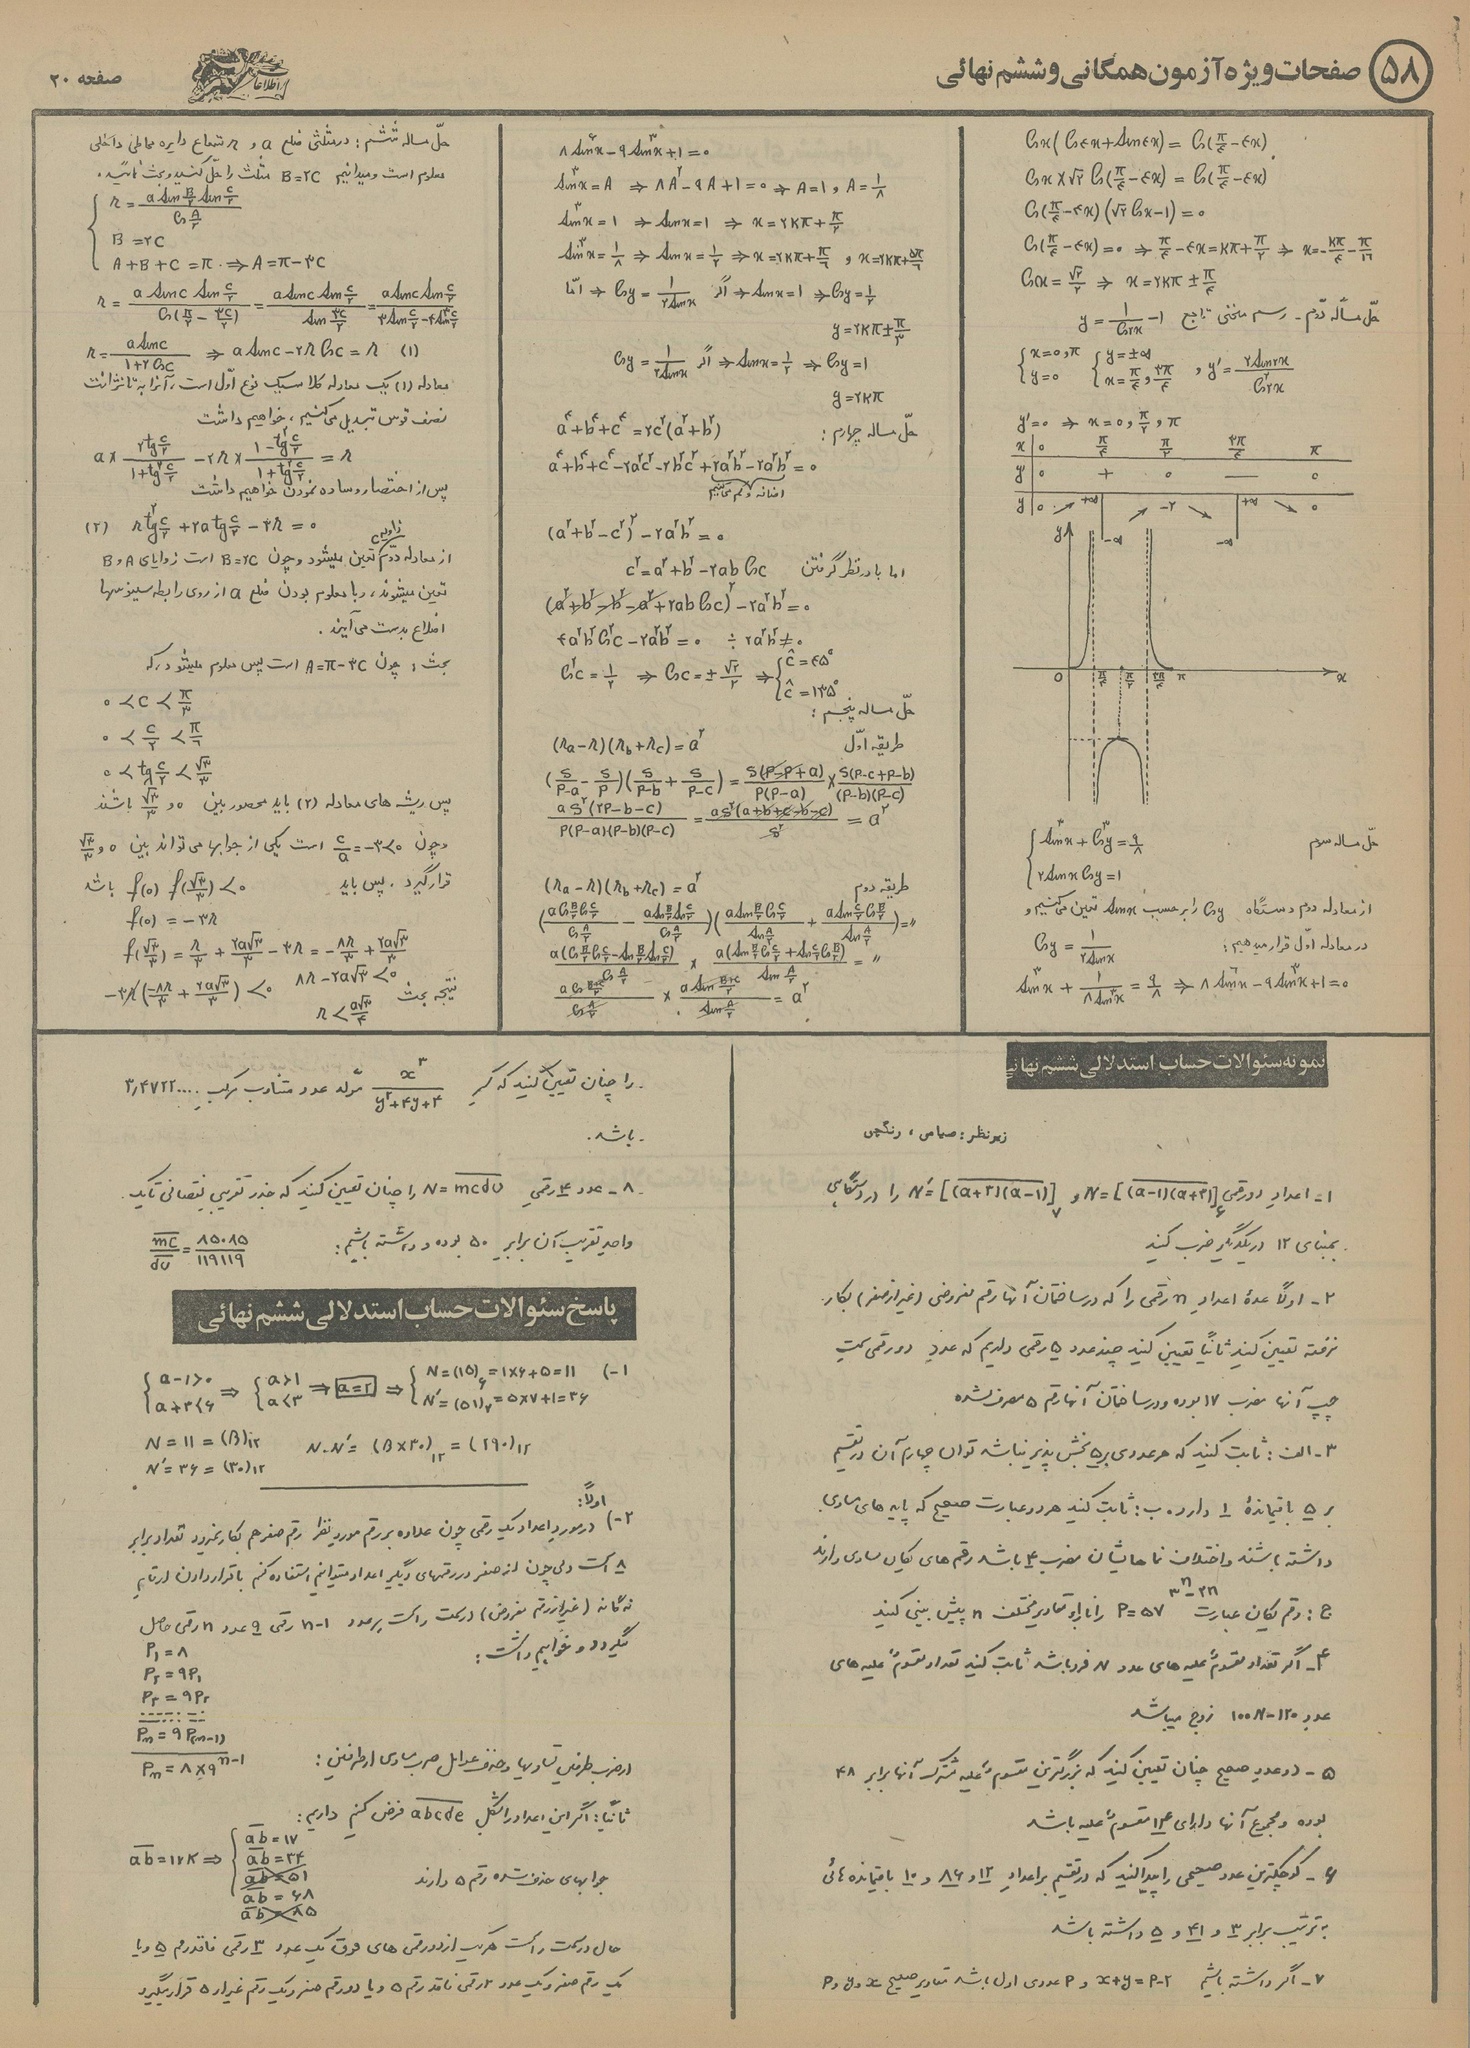 ۵۸ صفحات ویژه آزمون همگانی و ششم نهائی
اطلاعات
صفحه ۲۰
Cosx(Cos۴x+Sin۴x) = Cos(π/۴−۴x)
Cosx×√۲ Cos(π/۴−۴x) = Cos(π/۴−۴x)
Cos(π/۴−۴x)(√۲Cosx−۱)=۰
Cos(π/۴−۴x)=۰ ⇒ π/۴−۴x=Kπ+π/۲ ⇒ x=−Kπ/۴−π/۱۶
Cosx=√۲/۲ ⇒ x=۲Kπ±π/۴
حلّ مسأله دوّم - رسم منحنی تابع y=۱/Cos۲x −۱
{x=۰,π y=۰ {y=±∞ x=π/۴,۳π/۴ , y'=۲Sin۲x/Cos²۲x
y'=۰ ⇒ x=۰,π/۲,π
x ۰ π/۴ π/۲ ۳π/۴ π
y' ۰ + ۰ − ۰
y ۰ ↗ +∞ −∞ ↗ −۲ ↘ −∞ +∞ ↘ ۰
y
O π/۴ π/۲ ۳π/۴ π x
حلّ مساله سوم
{Sin³x+Cos³y=۹/۸
۲SinxCosy=۱
از معادله دوم دستگاه Cosy را برحسب Sinx تعیین می‌کنیم و
در معادله اوّل قرار میدهیم: Cosy=۱/۲Sinx
Sin³x+۱/۸Sin³x=۹/۸ ⇒ ۸Sin⁶x−۹Sin³x+۱=۰
۸Sin⁶x−۹Sin³x+۱=۰
Sin³x=A ⇒ ۸A²−۹A+۱=۰ ⇒ A=۱, A=۱/۸
Sin³x=۱ ⇒ Sinx=۱ ⇒ x=۲Kπ+π/۲
Sin³x=۱/۸ ⇒ Sinx=۱/۲ ⇒ x=۲Kπ+π/۶ , x=۲Kπ+۵π/۶
امّا ⇒ Cosy=۱/۲Sinx اگر ⇒ Sinx=۱ ⇒ Cosy=۱/۲
y=۲Kπ±π/۳
Cosy=۱/۲Sinx اگر ⇒ Sinx=۱/۲ ⇒ Cosy=۱
y=۲Kπ
حلّ مساله چهارم: a⁴+b⁴+c⁴=۲c²(a²+b²)
a⁴+b⁴+c⁴−۲a²c²−۲b²c²+۲a²b²−۲a²b²=۰
اضافه و کم می‌کنیم
(a²+b²−c²)²−۲a²b²=۰
اما با در نظر گرفتن c²=a²+b²−۲ab Cosc
(a²+b²−b²−a²+۲ab Cosc)²−۲a²b²=۰
۴a²b²Cos²c−۲a²b²=۰ ÷ ۲a²b²≠۰
Cos²c=۱/۲ ⇒ Cosc=±√۲/۲ ⇒ {ĉ=۴۵° ĉ=۱۳۵°
حلّ مساله پنجم:
طریقه اوّل (ra−r)(rb+rc)=a²
(S/P−a − S/P)(S/P−b + S/P−c)=S(P−P+a)/P(P−a) × S(P−c+P−b)/(P−b)(P−c)
aS²(۲P−b−c)/P(P−a)(P−b)(P−c) = aS²(a+b+c−b−c)/S² = a²
طریقه دوم (ra−r)(rb+rc)=a²
(aCosB/۲CosC/۲/CosA/۲ − aSinB/۲SinC/۲/CosA/۲)(aSinB/۲CosC/۲/SinA/۲ + aSinC/۲CosB/۲/SinA/۲)=〃
a(CosB/۲CosC/۲−SinB/۲SinC/۲)/CosA/۲ × a(SinB/۲CosC/۲+SinC/۲CosB/۲)/SinA/۲ =〃
aCos(B+C)/۲/CosA/۲ × aSin(B+C)/۲/SinA/۲ = a²
حلّ مساله ششم: در مثلثی ضلع a و r شعاع دایره محاطی داخلی
معلوم است و میدانیم B=۲C مثلث را حلّ کنید و بحث نمائید.
{r=aSinB/۲SinC/۲/CosA/۲
B=۲C
A+B+C=π ⇒ A=π−۳C
r=aSinc Sinc/۲/Cos(π/۲−۳c/۲)=aSinc Sinc/۲/Sin۳c/۲=aSinc Sinc/۲/۳Sinc/۲−۴Sin³c/۲
r=aSinc/۱+۲Cosc ⇒ aSinc−۲rCosc=r (۱)
معادله (۱) یک معادله کلاسیک نوع اوّل است، آنرا به تانژانت
نصف قوس تبدیل می‌کنیم، خواهیم داشت
a×۲tgc/۲/۱+tg²c/۲ −۲r×۱−tg²c/۲/۱+tg²c/۲=r
پس از اختصار و ساده نمودن خواهیم داشت
(۲) rtg²c/۲+۲atgc/۲−۳r=۰
از معادله دوّم زاویه c تعیین میشود و چون B=۲C است زوایای A و B
تعیین میشوند، و با معلوم بودن ضلع a از روی رابطه سینوسها
اضلاع بدست می‌آیند.
بحث: چون A=π−۳C است پس معلوم میشود که
۰<C<π/۳
۰<c/۲<π/۶
۰<tgc/۲<√۳/۳
پس ریشه های معادله (۲) باید محصور بین ۰ و √۳/۳ باشند
و چون c/a=−۳<۰ است یکی از جوابها می‌تواند بین ۰ و √۳/۳
قرار گیرد. پس باید f(۰) f(√۳/۳)<۰ باشد
f(۰)=−۳r
f(√۳/۳)=r/۳+۲a√۳/۳−۳r=−۸r/۳+۲a√۳/۳
−۳r(−۸r/۳+۲a√۳/۳)<۰ ۸r−۲a√۳<۰
نتیجه بحث r<a√۳/۴
نمونه سئوالات حساب استدلالی ششم نهائی
زیر نظر: صمامی، رنگچی
۱- اعداد دو رقمی N=[(a−۱)(a+۳)]۶ و N'=[(a+۳)(a−۱)]۷ را در دستگاهی
بمبنای ۱۲ در یکدیگر ضرب کنید
۲- اولاً عدهٔ اعداد n رقمی را که در ساختمان آنها رقم مفروضی (غیر از صفر) بکار
نرفته تعیین کنید ثانیاً تعیین کنید چند عدد ۵ رقمی داریم که عدد دو رقمی سمت
چپ آنها مضرب ۱۷ بوده و در ساختمان آنها رقم ۵ مصرف نشده
۳- الف: ثابت کنید که هر عددی بر ۵ بخش پذیر نباشد توان چهارم آن در تقسیم
بر ۵ باقیماندهٔ ۱ دارد. ب: ثابت کنید هر دو عبارت صحیح که پایه های مساوی
داشته باشند و اختلاف نماهایشان مضرب ۴ باشد رقم های یکان مساوی دارند
ج: رقم یکان عبارت P=۵۷ ۳ⁿ⁻²ⁿ را بازاء مقادیر مختلف n پیش بینی کنید
۴- اگر تعداد مقسوم‌ٌ علیه های عدد N فرد باشد ثابت کنید تعداد مقسوم‌ٌ علیه های
عدد ۱۰۰N−۱۲۰ زوج میباشد
۵- دو عدد صحیح چنان تعیین کنید که بزرگترین مقسوم‌ٌ علیه مشترک آنها برابر ۴۸
بوده و مجموع آنها دارای ۱۴ مقسوم‌ٌ علیه باشد
۶- کوچکترین عدد صحیحی را پیدا کنید که در تقسیم بر اعداد ۱۲ و ۸۶ و ۱۰ باقیمانده هائی
به ترتیب برابر ۳ و ۴۱ و ۵ داشته باشد
۷- اگر داشته باشیم x+y=P−۲ و P عددی اول باشد مقادیر صحیح x و y و P
را چنان تعیین کنید که کسر x³/y²+۴y+۴ مولد عدد متناوب مرکب ۳,۴۷۲۲....
باشد.
۸- عدد ۴ رقمی N=mcdu را چنان تعیین کنید که جذر تقریبی نقصانی تا یک
واحد تقریب آن برابر ۵۰ بوده و داشته باشیم: mc/du=۸۵۰۸۵/۱۱۹۱۱۹
پاسخ سئوالات حساب استدلالی ششم نهائی
۱-) {a−۱>۰ a+۳<۶ ⇒ {a>۱ a<۳ ⇒ a=۲ ⇒ {N=(۱۵)۶=۱×۶+۵=۱۱ N'=(۵۱)۷=۵×۷+۱=۳۶
N=۱۱=(B)۱۲ N.N'=(B×۳۰)۱۲=(۲۹۰)۱۲
N'=۳۶=(۳۰)۱۲
۲-) اولاً:
در مورد اعداد یک رقمی چون علاوه بر رقم مورد نظر رقم صفر هم بکار نمیرود تعداد برابر
۸ است ولی چون از صفر در رقمهای دیگر اعداد میتوانیم استفاده کنیم با قرار دادن ارقام
نه گانه (غیر از رقم مفروض) در سمت راست هر عدد n−۱ رقمی ۹ عدد n رقمی حاصل
میگردد و خواهیم داشت:
P۱=۸
P۲=۹P۱
P۳=۹P۲
Pn=۹P(n−۱)
از ضرب طرفین تساویها و حذف عوامل ضرب مساوی از طرفین: Pn=۸×۹ⁿ⁻¹
ثانیاً: اگر این اعداد را بشکل abcde فرض کنیم داریم:
ab=۱۷K ⇒ {ab=۱۷
ab=۳۴
ab=۵۱
ab=۶۸
ab=۸۵
جوابهای حذف شده رقم ۵ دارند
حال در سمت راست هر یک از دو رقمی های فوق یک عدد ۳ رقمی فاقد رقم ۵ و یا
یک رقم صفر و یک عدد ۲ رقمی فاقد رقم ۵ و یا دو رقم صفر و یک رقم غیر از ۵ قرار میگیرد